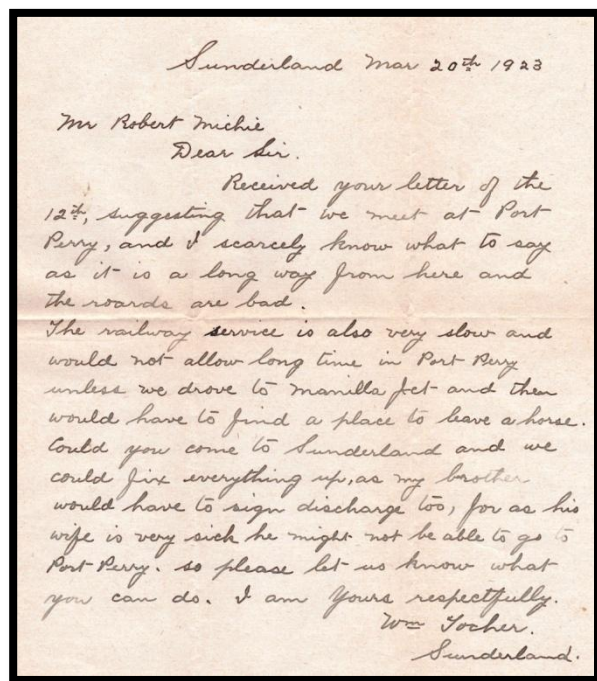 Sunderland Mar 20th 1923
Mr Robert Michie
Dear Sir.
Received your letter of the
12th, suggesting that we meet at Port
Perry, and I scarcely know what to say
as it is a long way from here and
the roards are bad.
The railway service is also very slow and
would not allow long time in Port Perry
unless we drove to Manilla Jct and then
would have to find a place to leave a horse.
Could you come to Sunderland and we
could fix everything up, as my brother
would have to sign discharge too, for as his
wife is very sick he might not be able to go to
Port Perry. so please let us know what
you can do. I am Yours respectfully.
Wm Tocher.
Sunderland.